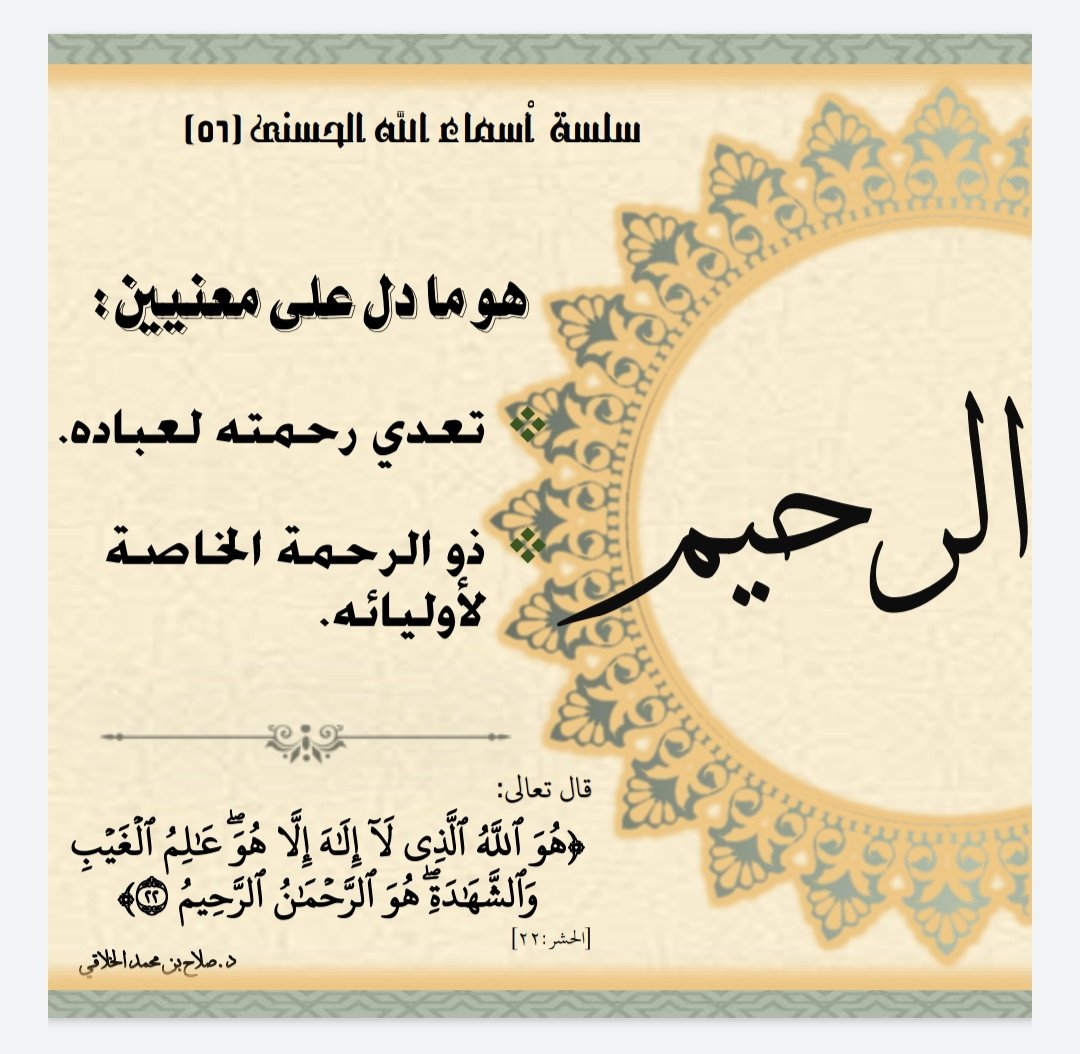 سلسة أسماء الله الحسنى (٥٦)
الرحيم
هو ما دل على معنيين:
تعدي رحمته لعباده.
ذو الرحمة الخاصة
لأوليائه.
قال تعالى:
﴿هُوَ ٱللَّهُ ٱلَّذِى لَآ إِلَـٰهَ إِلَّا هُوَۖ عَـٰلِمُ ٱلْغَيْبِ
وَٱلشَّهَـٰدَةِۖ هُوَ ٱلرَّحْمَـٰنُ ٱلرَّحِيمُ ٢٢﴾
[الحشر:٢٢]
د.صلاح بن محمد الخلاقي